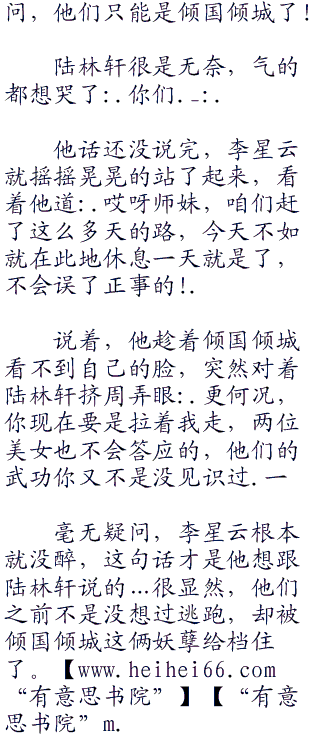 问，他们只能是倾国倾城了！
陆林轩很是无奈，气的
都想哭了:.你们._:.
他话还没说完，李星云
就摇摇晃晃的站了起来，看
着他道:.哎呀师妹，咱们赶
了这么多天的路，今天不如
就在此地休息一天就是了，
不会误了正事的!.
说着，他趁着倾国倾城
看不到自己的脸，突然对着
陆林轩挤周弄眼:.更何况，
你现在要是拉着我走，两位
美女也不会答应的，他们的
武功你又不是没见识过.一
毫无疑问，李星云根本
就没醉，这句话才是他想跟
陆林轩说的…很显然，他们
之前不是没想过逃跑，却被
倾国倾城这俩妖孽给档住
了。【www.heihei66.com
“有意思书院”】【“有意
思书院”m.